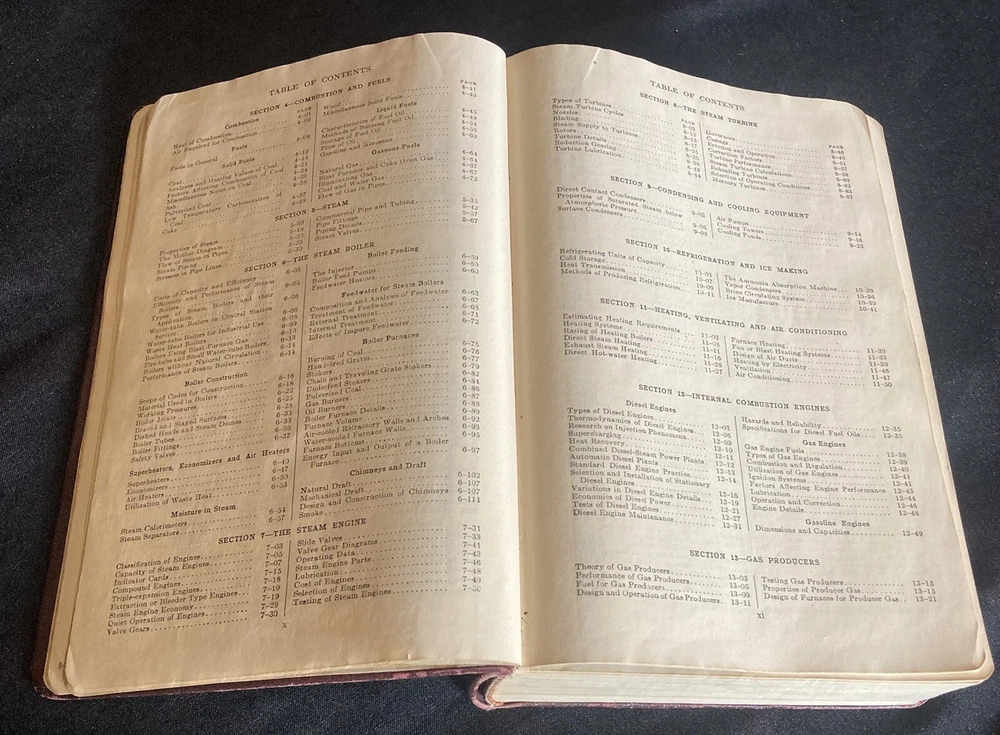 TABLE OF CONTENTS
SECTION 4—COMBUSTION AND FUELS
Combustion
PAGE
Heat of Combustion
Air Required for Combustion
Fuels
Fuels in General
Solid Fuels
Coal
Analyses and Heating Values of Coal
Factors Affecting Combustion of Coal
Ash
Miscellaneous Notes on Coal
Pulverized Coal
Low Temperature Carbonization of
Coal
Coke
PAGE
Wood
Miscellaneous Solid Fuels
Liquid Fuels
Characteristics of Fuel Oil
Methods of Burning Fuel Oil
Storage of Fuel Oil
Flow of Oil
Gasoline and Kerosene
Gaseous Fuels
Natural Gas
Blast Furnace and Coke Oven Gas
Illuminating Gas
Coal and Water Gas
Flow of Gas in Pipes 4-72
SECTION 5—STEAM
Properties of Steam
The Mollier Diagram
Flow of Steam
Steam Piping
Stresses in Pipe Lines
Commercial Pipe and Tubing 5-35
Pipe Fittings 5-42
Piping Details 5-57
Steam Valves 5-67
SECTION 6—THE STEAM BOILER
Units of Capacity and Efficiency 6-03
Efficiency and Performance of Steam
Boilers 6-05
Types of Steam Boilers and their
Application 6-06
Water-tube Boilers in Central Station
Service 6-08
Water-tube Boilers for Industrial Use 6-09
Waste Heat Boilers
Boilers Using Blast Furnace Gas 6-13
Fire-tube and Small Water-tube Boilers 6-14
Boilers without Natural Circulation 6-14
Performance of Steam Boilers
Boiler Construction
Scope of Codes for Construction 6-16
Material Used in Boilers 6-18
Working Pressures 6-22
Boiler Joints 6-25
Braced and Stayed Surfaces
Dished Heads and Steam Domes 6-33
Boiler Tubes
Boiler Fittings 6-36
Safety Valves 6-37
Superheaters, Economizers and Air Heaters
Superheaters 6-40
Economizers 6-47
Air Heaters 6-50
Utilization of Waste Heat 6-53
Moisture in Steam
Steam Calorimeters 6-54
Steam Separators 6-57
Boiler Feeding
The Injector 6-59
Boiler Feed Pumps 6-60
Feedwater Heaters 6-60
Feedwater for Steam Boilers
Composition and Analysis of Feedwater 6-63
Treatment of Feedwater 6-67
External Treatment 6-68
Internal Treatment 6-71
Effects of Impure Feedwater 6-72
Boiler Furnaces
Burning of Coal 6-75
Hand-fired Grates 6-76
Stokers 6-77
Chain and Traveling Grate Stokers 6-79
Underfeed Stokers 6-82
Pulverized Coal 6-84
Gas Burners 6-86
Oil Burners 6-87
Boiler Furnace Details 6-88
Furnace Volume 6-89
Air-cooled Refractory Walls and Arches 6-92
Water-cooled Furnace Walls 6-93
Furnace Bottoms 6-95
Energy Input and Output of a Boiler
Furnace 6-97
Chimneys and Draft
Natural Draft 6-102
Mechanical Draft 6-107
Design and Construction of Chimneys 6-107
Smoke 6-111
SECTION 7—THE STEAM ENGINE
Classification of Engines 7-03
Capacity of Steam Engines 7-05
Indicator Cards 7-07
Compound Engines 7-15
Triple-expansion Engines 7-18
Extraction or Bleeder Type Engines 7-19
Steam Engine Economy 7-19
Quiet Operation of Engines 7-29
Valve Gears 7-30
Slide Valves 7-31
Valve Gear Diagrams 7-33
Operating Data 7-41
Steam Engine Parts 7-43
Lubrication 7-46
Cost of Engines 7-48
Selection of Engines 7-49
Testing of Steam Engines 7-50
x
TABLE OF CONTENTS
SECTION 8—THE STEAM TURBINE
PAGE
Types of Turbines
Steam Turbine Cycles
Nozzles
Blading
Steam Supply to Turbines
Rotors
Turbine Details
Reduction Gearing
Turbine Lubrication
PAGE
Governors
Casings
Erection and Operation
Correction Factors
Turbine Performance
Steam Turbine Calculations
Reheating Turbines
Selection of Operating Conditions
Mercury Turbines
SECTION 9—CONDENSING AND COOLING EQUIPMENT
Direct Contact Condensers
Properties of Saturated Steam below
Atmospheric Pressure
Surface Condensers
Air Pumps 9-14
Cooling Towers 9-16
Cooling Ponds 9-23
SECTION 10—REFRIGERATION AND ICE MAKING
Refrigerating Units of Capacity 10-03
Cold Storage 10-07
Heat Transmission 10-09
Methods of Producing Refrigeration 10-11
The Ammonia Absorption Machine 10-29
Vapor Condensers 10-36
Brine Circulating System
Ice Manufacture 10-41
SECTION 11—HEATING, VENTILATING AND AIR CONDITIONING
Estimating Heating Requirements 11-03
Heating Systems
Rating of Heating Boilers 11-11
Direct Steam Heating
Exhaust Steam Heating 11-26
Direct Hot-water Heating 11-27
Furnace Heating 11-30
Fan or Blast Heating Systems 11-33
Design of Air Ducts
Heating by Electricity
Ventilation 11-46
Air Conditioning 11-47
11-50
SECTION 12—INTERNAL COMBUSTION ENGINES
Diesel Engines
Types of Diesel Engines 12-03
Thermodynamics of Diesel Engines 12-05
Research on Injection Phenomena 12-09
Supercharging 12-10
Heat Recovery
Combined Diesel-Steam Power Plants 12-11
Automatic Diesel Plants 12-12
Standard Diesel Engine Practice 12-13
Selection and Installation of Stationary
Diesel Engines 12-14
Variations in Diesel Engine Details 12-16
Economics of Diesel Power 12-19
Tests of Diesel Engines 12-21
Diesel Engine Maintenance 12-27
12-31
Hazards and Reliability 12-35
Specifications for Diesel Fuel Oils 12-35
Gas Engines
Gas Engine Fuels 12-38
Types of Gas Engines 12-39
Combustion and Regulation 12-40
Utilization of Gas Engines 12-41
Ignition Systems 12-41
Factors Affecting Engine Performance 12-43
Lubrication 12-44
Operation and Correction 12-46
Engine Details 12-48
Gasoline Engines
Dimensions and Capacities 12-49
SECTION 13—GAS PRODUCERS
Theory of Gas Producers 13-03
Performance of Gas Producers 13-05
Fuel for Gas Producers 13-09
Design and Operation of Gas Producers 13-11
Testing Gas Producers 13-15
Properties of Producer Gas 13-15
Design of Furnaces for Producer Gas 13-21
xi